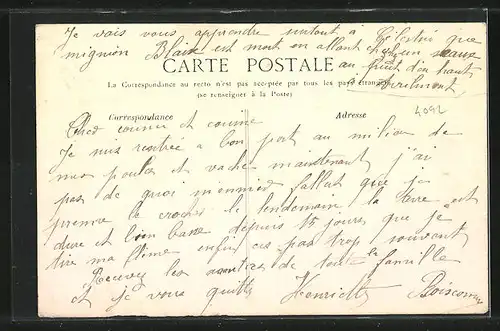 Je vais vous apprendre surtout à Célestré que
mignon Blaise est mort en allant chercher seaux
CARTE POSTALE
au puit d'en haut
La Correspondance au recto n'est pas acceptée par tous les pays étrangers
(se renseigner à la Poste)
4092
Correspondance
Adresse
Cher cousin et cousine
Je suis rentrée a bon port au milieu de
mes poules et vache maintenant j'ai
pas de quoi m'ennuier fallut que je
prenne le crochet le lendemain la terre est
dure et bien basse depuis 15 jours que je
tire ma flème enfin ces pas trop souvant
Recevez les amitiés de toute la famille
et je vous quitte Henriette